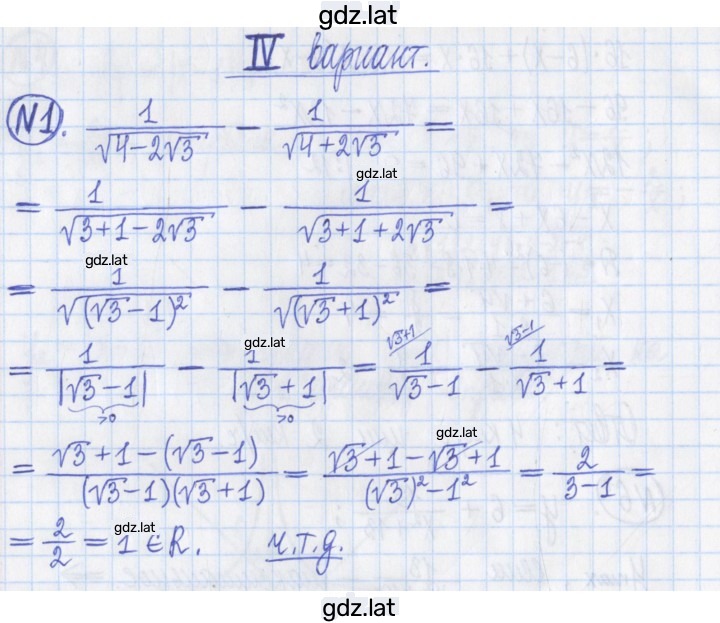 gdz.lat
IV вариант.
№1. 1/√(4-2√3) - 1/√(4+2√3) =
gdz.lat
= 1/√(3+1-2√3) - 1/√(3+1+2√3) =
gdz.lat
= 1/√((√3-1)²) - 1/√((√3+1)²) =
gdz.lat
= 1/|√3-1| - 1/|√3+1| = 1/(√3-1) - 1/(√3+1) =
>0 >0 √3+1 √3-1
gdz.lat
= (√3+1-(√3-1))/((√3-1)(√3+1)) = (√3+1-√3+1)/((√3)²-1²) = 2/(3-1) =
gdz.lat
= 2/2 = 1 ∈ R. ч.т.д.
gdz.lat